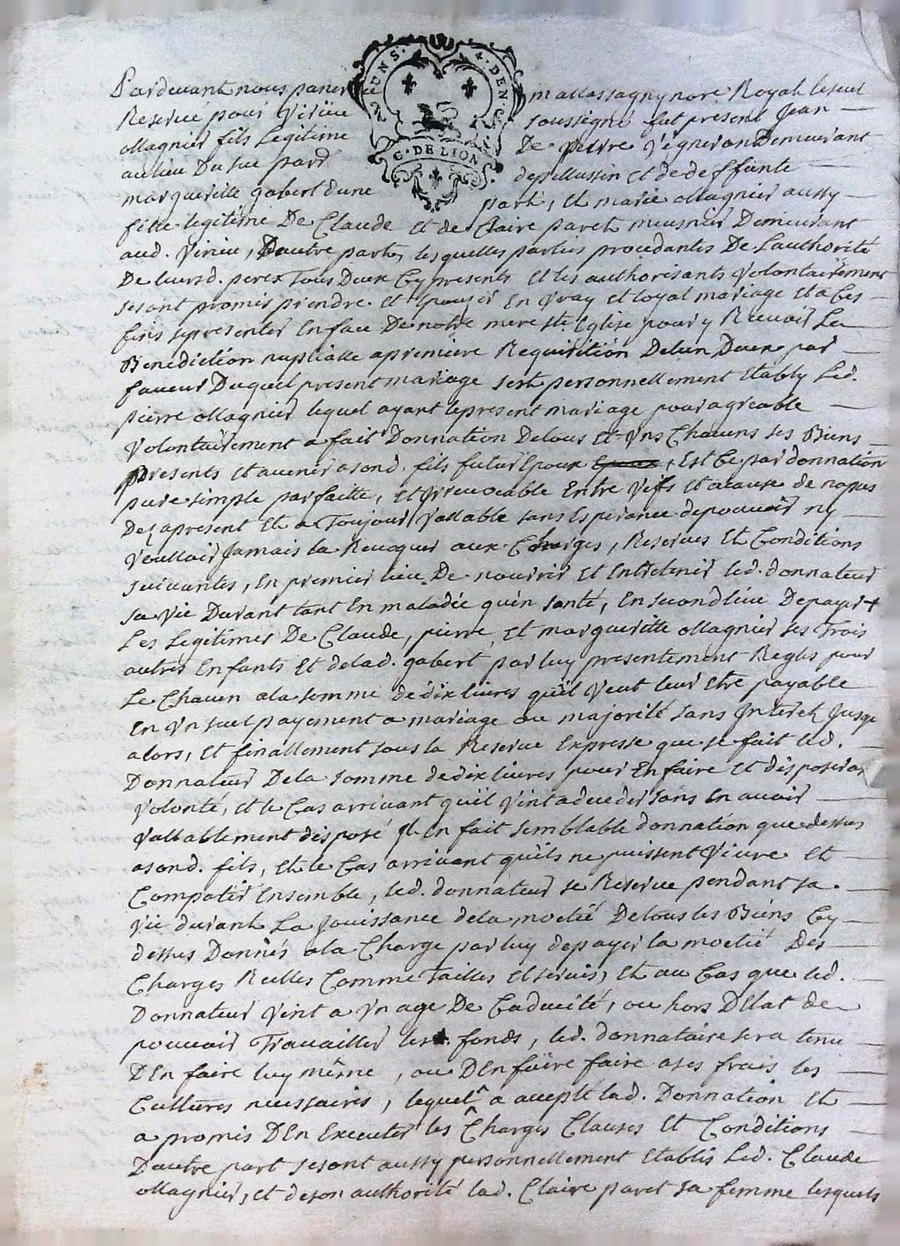 UNS. 4. DEN
G. DE LION
Pardevant nous mallassagny no.re Royal
Reservé pour Virieu soussigné fut present Jean
Magnier fils Legitime De pierre vigneron Demeurant
aulieu Du depellussin et dedeffunte
margueritte gabert Dune part, et marie Magnier aussy
fille legitime De Claude et de Claire paret meusnier Demeurant
aud. Virieu, Dautre part, lesquelles parties procedantes De Lauthorité
De leursd. peres Tous Deux Cy presents et les authorisants Volontairement
sesont promis prendre et Epouser En vray et loyal mariage Et a Ces
fins se presenter En face De notre mere ste Eglise pour y Recevoir La
Benediction nuptialle apremiere Requisition Delun Deux par
faveur Duquel present mariage sest personnellement Etably Led.
pierre Magnier lequel ayant le present mariage pour agreable
Volontairement a fait Donnation De tous Et Uns Chacuns ses Biens
presents et avenir asond. fils futur Epoux, Est Ce par donnation
pure simple parfaitte, Et jrrevocable Entre vifs Et acause de nopces
Dez apresent Et a Toujour Vallable sans Esperance depouvoir ny
Voulloir Jamais la Revoquer aux Charges, Reserves Et Conditions
suivantes, En premier lieu De nourrir Et Entretenir led. donnateur
sa vie Durant tant En maladie quen santé, En second lieu Depayer
Les Legitimes De Claude, pierre, Et margueritte Magnier ses Trois
autres Enfants Et delad. gabert, par luy presentement Reglés pour
Le Chacun ala somme dedix livres quil Veut leur Etre payable
En Un seul payement a mariage ou majorité sans Jnterest Jusqu
alors, Et finallement sous la Reserve Expresse que se fait led.
Donnateur Dela somme dedix livres pour En faire Et disposer a
Volonté, et le Cas arrivant quil Vint adeceder sans En avoir
Vallablement disposé Jl En fait semblable donnation que dessus
asond. fils, Et le Cas arrivant quils ne puissent Vivre Et
Compatir Ensemble, led. donnateur se Reserve pendant sa
vie durant La Jouissance dela moetié De tous les Biens Cy
dessus Donnés ala Charge par luy depayer la moetié Des
Charges Reelles Comme Tailles Et servis, Et au Cas que led.
Donnateur Vint a Un age De Caducité, ou hors DEtat de
pouvoir Travailler les fonds, led. donnataire sera tenu
DEn faire luy même, ou DEn faire faire a ses frais les
Cultures necessaires, lequel a accepté lad. Donnation Et
a promis DEn Executer les Charges Clauses Et Conditions
Dautre part sesont aussy personnellement Etablis Led. Claude
Magnier, et deson authorité lad. Claire paret sa femme lesquels